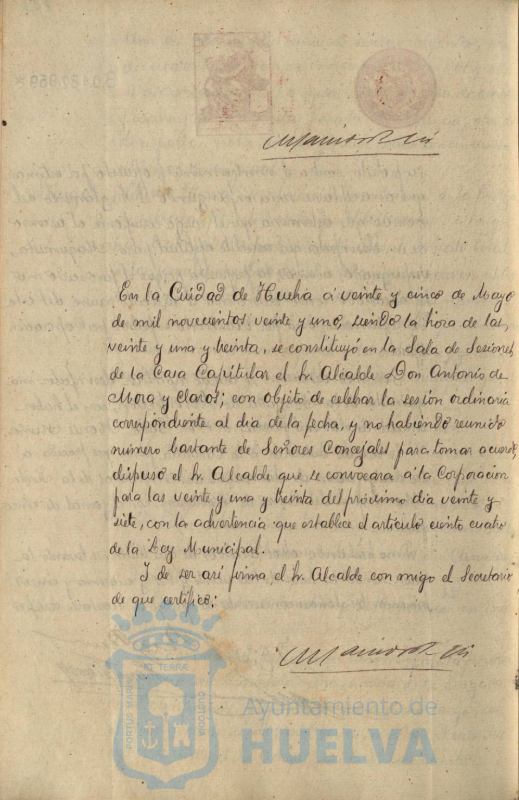 En la Cuidad de Huelva á veinte y cinco de Mayo
de mil novecientos veinte y uno, siendo la hora de las
veinte y una y treinta, se constituyó en la Sala de Sesiones
de la Casa Capitular el Sr. Alcalde Don Antonio de
Mora y Claros; con objeto de celebrar la sesion ordinaria
correpondiente al dia de la fecha, y no habiendo reunido
número bastante de Señores Concejales para tomar acuerdo,
dispuso el Sr. Alcalde que se convocara á la Corporacion
para las veinte y una y treinta del próximo dia veinte y
siete, con la advertencia que establece el artículo ciento cuatro
de la Ley Municipal.
I de ser asi firma el Sr. Alcalde con migo el Secretario
de que certifico:
PORTUS MARIS ET TERRÆ CUSTODIA
Ayuntamiento de
HUELVA